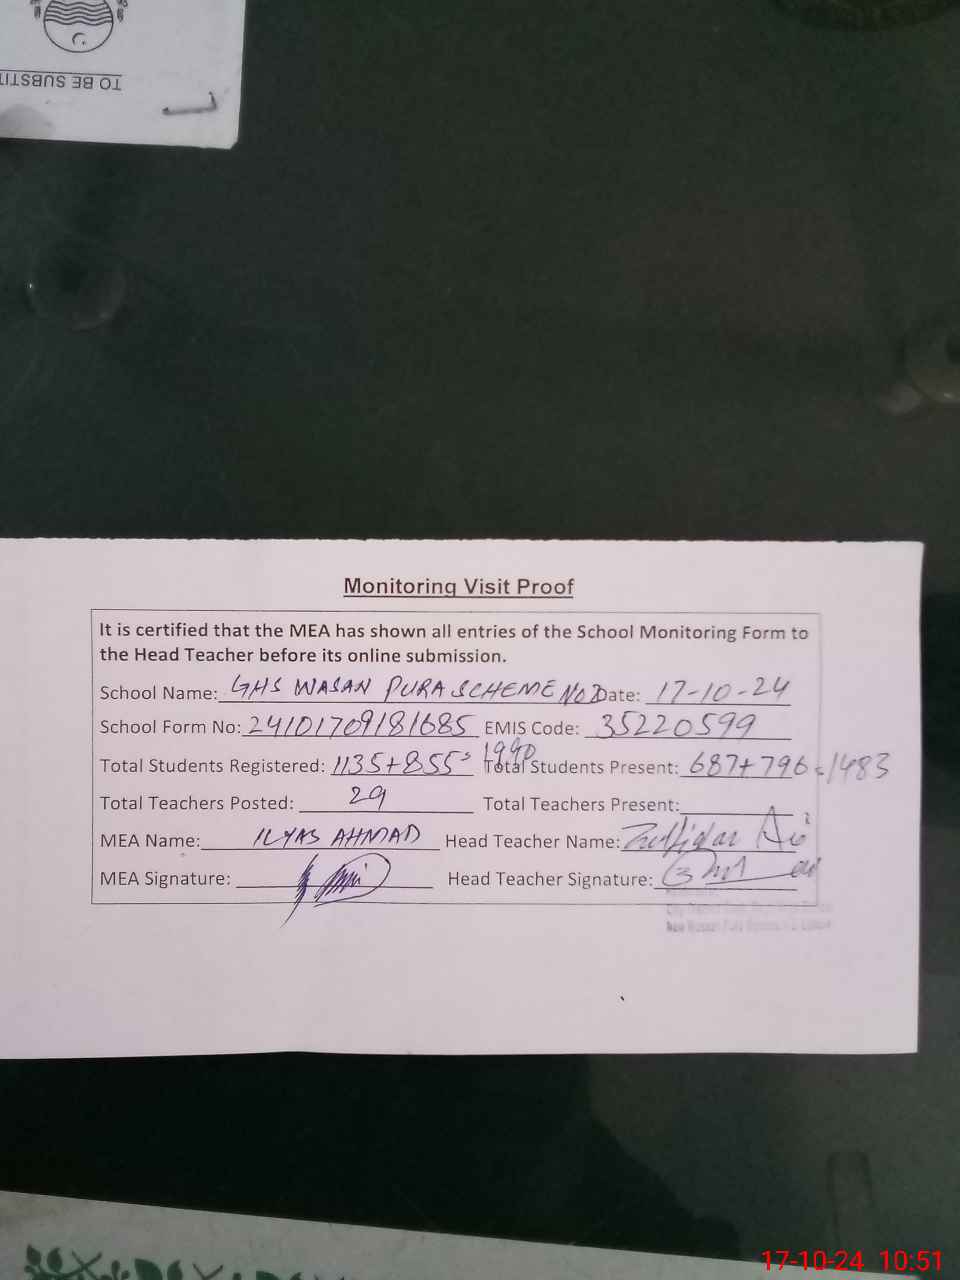 TO BE SUBSTIT
Monitoring Visit Proof
It is certified that the MEA has shown all entries of the School Monitoring Form to
the Head Teacher before its online submission.
School Name: GHS WASAN PURA SCHEME NO 2 Date: 17-10-24
School Form No: 24101709181685 EMIS Code: 35220599
Total Students Registered: 1135+855= 1990 Total Students Present: 687+796=1483
Total Teachers Posted: 29 Total Teachers Present:
MEA Name: ILYAS AHMAD Head Teacher Name: Zulfiqar Ali
MEA Signature: Head Teacher Signature:
17-10-24 10:51